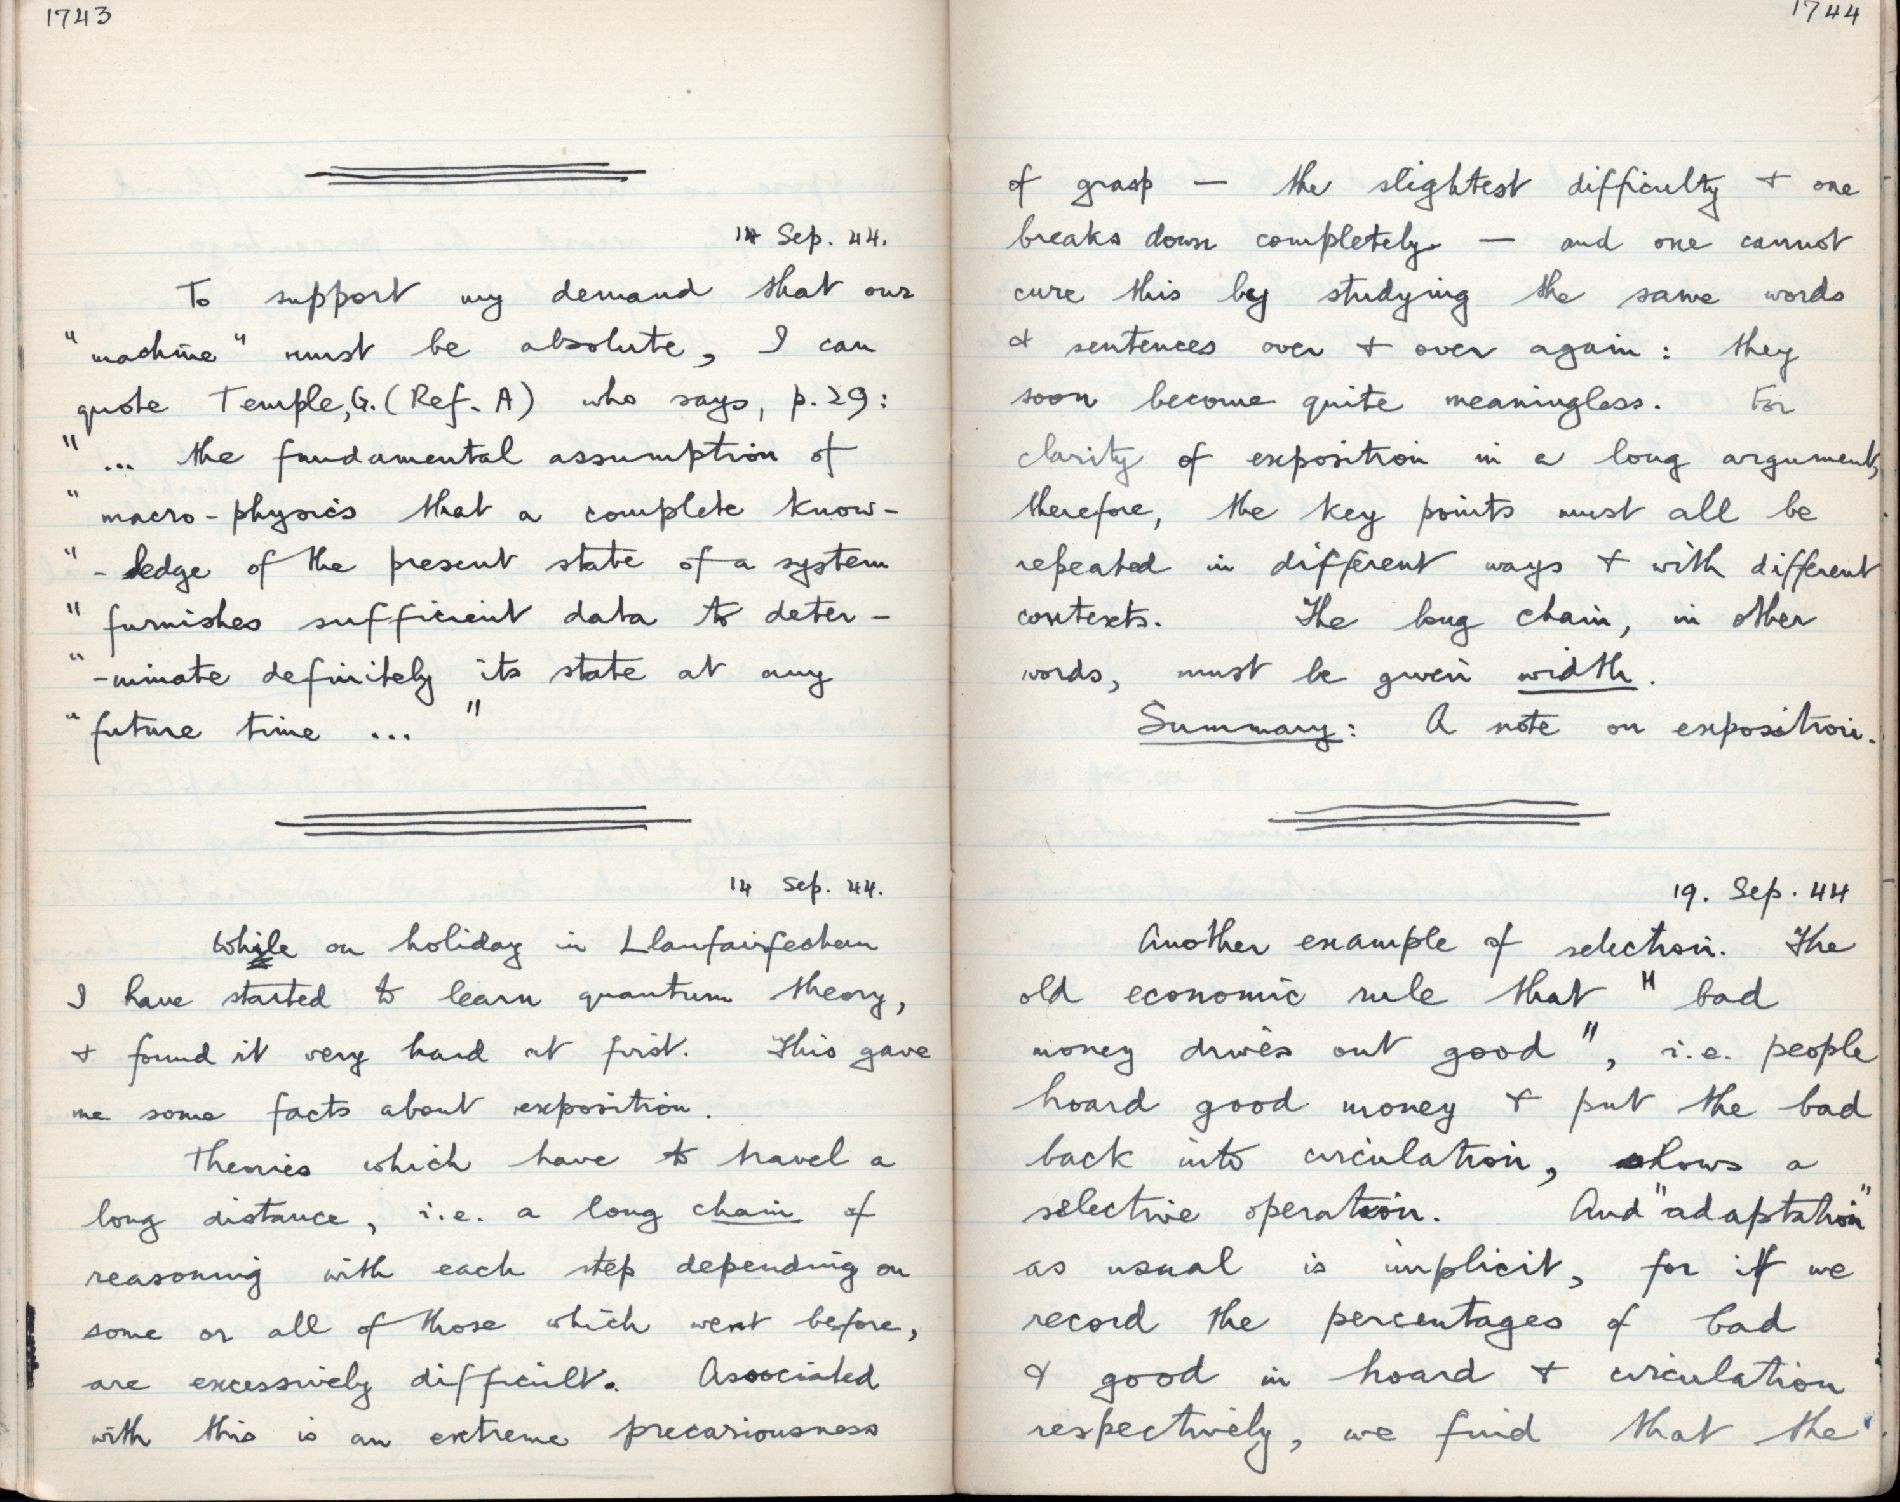 1743
14 Sep. 44.
To support my demand that our
"machine" must be absolute, I can
quote Temple, G. (Ref. A) who says, p. 29:
" ... the fundamental assumption of
" macro-physics that a complete know-
" -ledge of the present state of a system
" furnishes sufficient data to deter-
" -minate definitely its state at any
" future time ... "
14 Sep. 44.
While on holiday in Llanfairfechan
I have started to learn quantum theory,
& found it very hard at first. This gave
me some facts about exposition.
Themes which have to travel a
long distance, i.e. a long chain of
reasoning with each step depending on
some or all of those which went before,
are excessively difficult. Associated
with this is an extreme precariousness
1744
of grasp — the slightest difficulty & one
breaks down completely — and one cannot
cure this by studying the same words
& sentences over & over again: they
soon become quite meaningless. For
clarity of exposition in a long argument,
therefore, the key points must all be
repeated in different ways & with different
contexts. The long chain, in other
words, must be given width.
Summary: A note on exposition.
19. Sep. 44
Another example of selection. The
old economic rule that "bad
money drives out good", i.e. people
hoard good money & put the bad
back into circulation, shows a
selective operation. And "adaptation"
as usual is implicit, for if we
record the percentages of bad
& good in hoard & circulation
respectively, we find that the